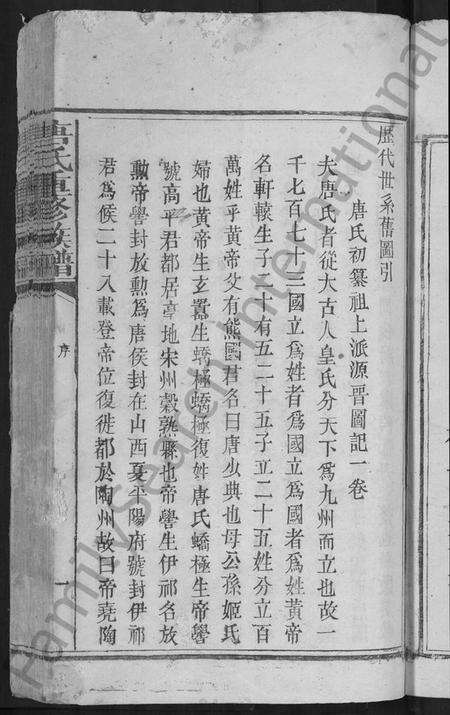 歷代世系舊圖引
唐氏初纂祖上派源晋圖記一卷
夫唐氏者從大古人皇氏分天下爲九州而立也故一
千七百七十三國立爲姓者爲國立爲國者爲姓黃帝
名軒轅生子二十有五二十五子立二十五姓分立百
萬姓乎黃帝父有熊國君名曰唐少典也母公孫姬氏
婦也黃帝生玄囂生蟜極蟜極復姓唐氏蟜極生帝嚳
號高平君都居亳地宋州穀熟縣也帝嚳生伊祁名放
勳帝嚳封放勲爲唐侯封在山西夏平陽府號封伊祁
君爲侯二十八載登帝位復徙都於陶州故曰帝堯陶
唐氏重修族譜
序
一
FamilySearch International